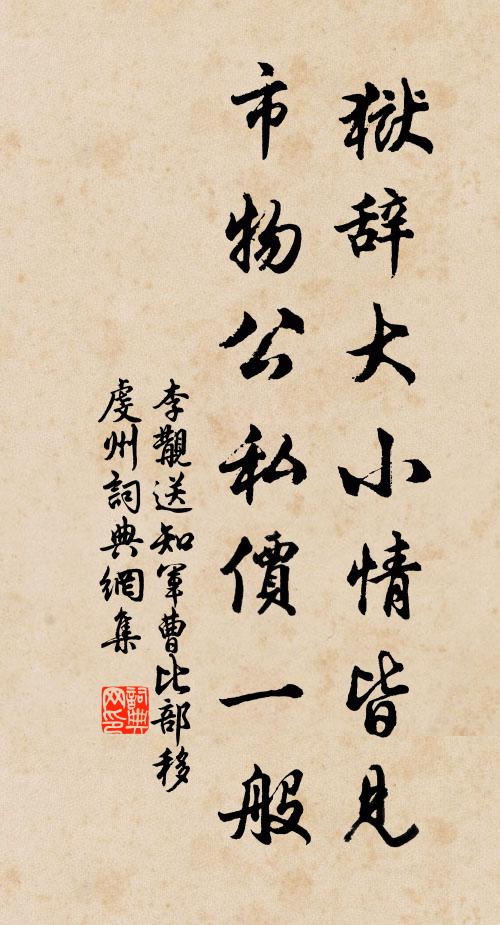 獄辞大小情皆見
市物公私價一般
李覯送知軍曹比部移
虔州詞典網集
詞典网印